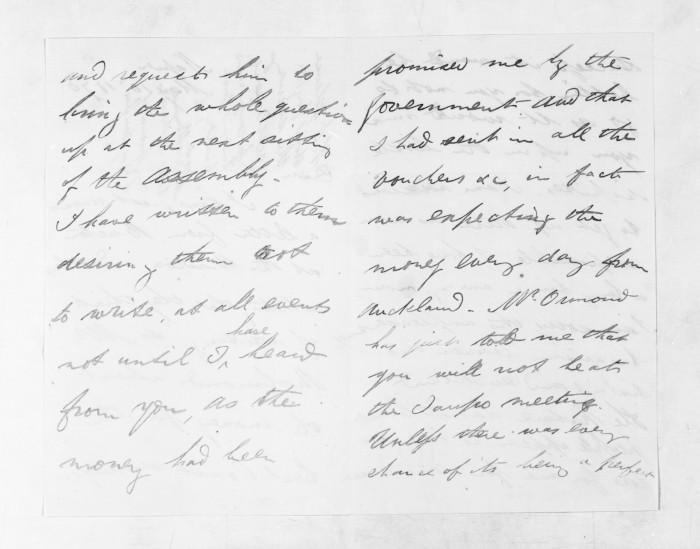 and request him to
bring the whole question
up at the next sitting
of the Assembly -
I have written to them
desiring them not
to write, at all events
not until I, have heard
from you, as the
money had been
promised me by the
government and that
I had sent in all the
vouchers &c, in fact
was expecting the
money every day from
Auckland - Mr. Ormond
has just told me that
you will not be at
the Taupo meeting.
Unless there was every
chance of its being a perfect